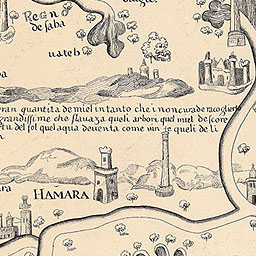 Regn
de saba
uateb
gran quantita de miel in tanto che i non cura de racoglierlo
grandissime che stauaza queli arbori quel miel de score
tu del sol quel aqua deuenta come un e queli de li
HAMARA